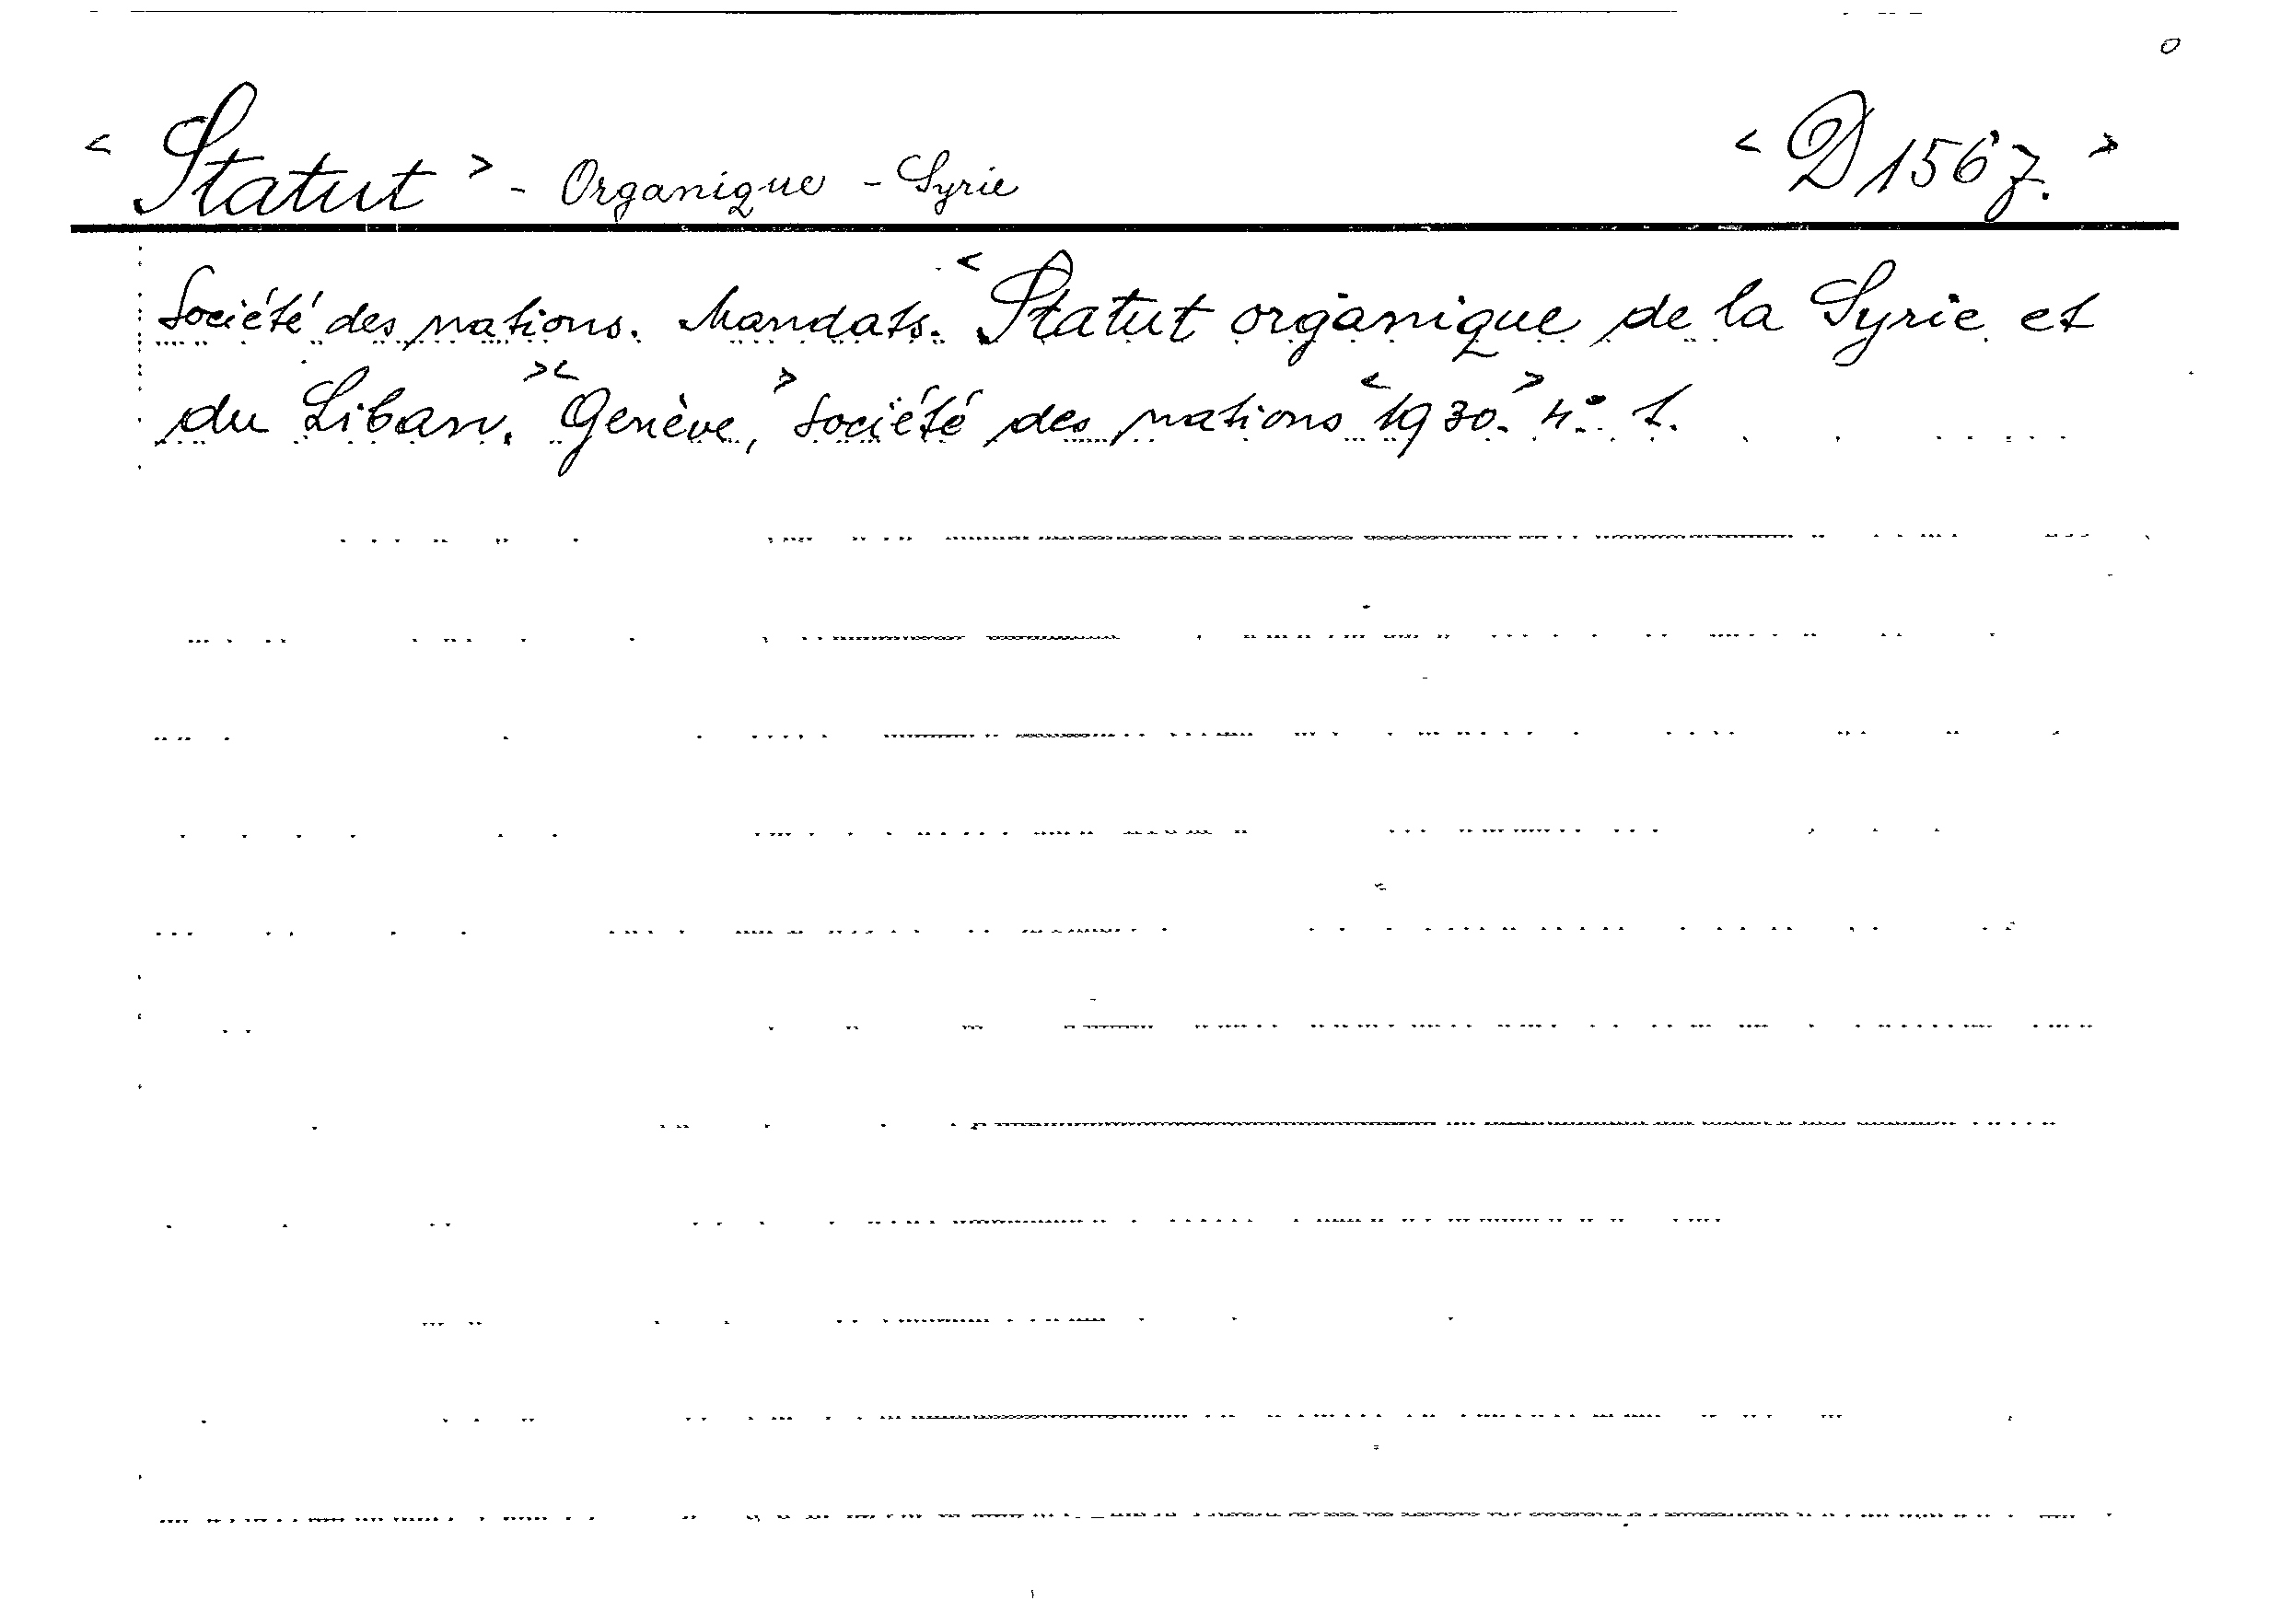 < Statut > - Organique - Syrie < D 1567. >
Société des nations. Mandats. < Statut organique de la Syrie et
du Liban. >< Genève, > Société des nations < 1930. > 4° 1.